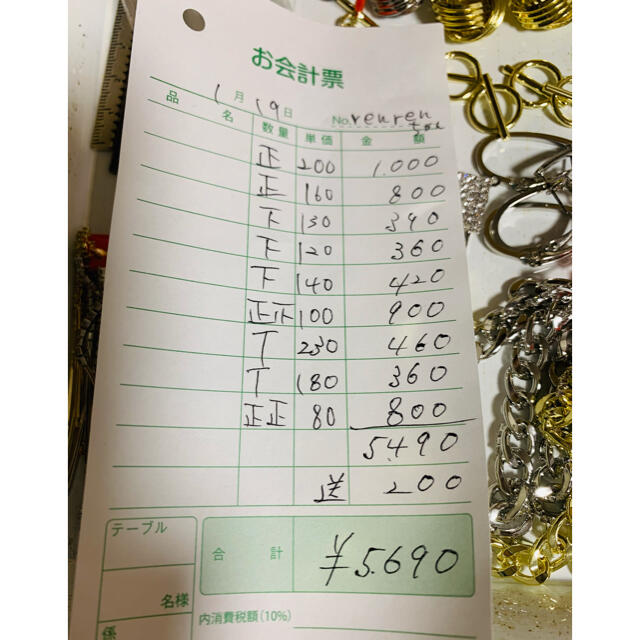 お会計票
1月19日 No. renren
品名 数量 単価 金額
正 200 1.000
正 160 800
下 130 390
下 120 360
下 140 420
正正 100 900
T 230 460
T 180 360
正正 80 800
5.490
送 200
テーブル
合計 ¥5.690
名様
内消費税額(10%)
係